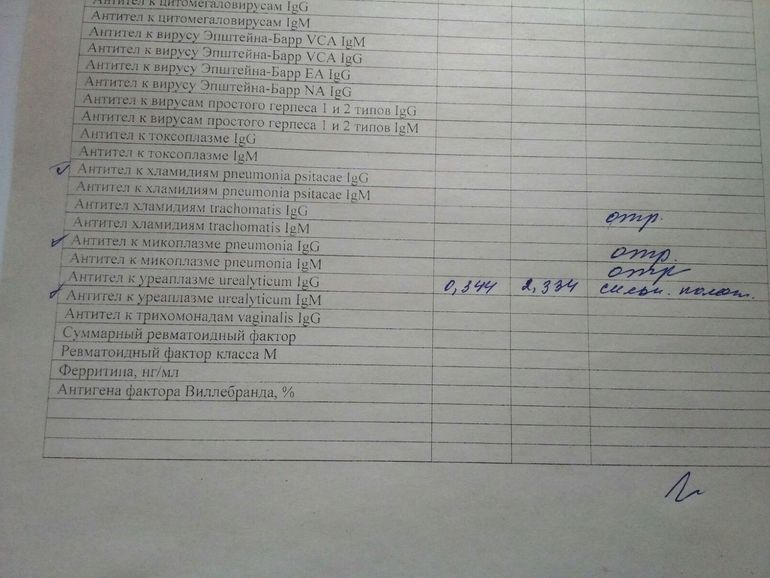 Антител к цитомегаловирусам IgG
Антител к цитомегаловирусам IgM
Антител к вирусу Эпштейна-Барр VCA IgM
Антител к вирусу Эпштейна-Барр VCA IgG
Антител к вирусу Эпштейна-Барр EA IgG
Антител к вирусу Эпштейна-Барр NA IgG
Антител к вирусам простого герпеса 1 и 2 типов IgG
Антител к вирусам простого герпеса 1 и 2 типов IgM
Антител к токсоплазме IgG
Антител к токсоплазме IgM
Антител к хламидиям pneumonia psitacae IgG
Антител к хламидиям pneumonia psitacae IgM
Антител хламидиям trachomatis IgG
Антител хламидиям trachomatis IgM отр.
Антител к микоплазме pneumonia IgG
Антител к микоплазме pneumonia IgM отр.
Антител к уреаплазме urealyticum IgG отр
Антител к уреаплазме urealyticum IgM 0,344 2,334 сильн. полож.
Антител к трихомонадам vaginalis IgG
Суммарный ревматоидный фактор
Ревматоидный фактор класса М
Ферритина, нг/мл
Антигена фактора Виллебранда, %